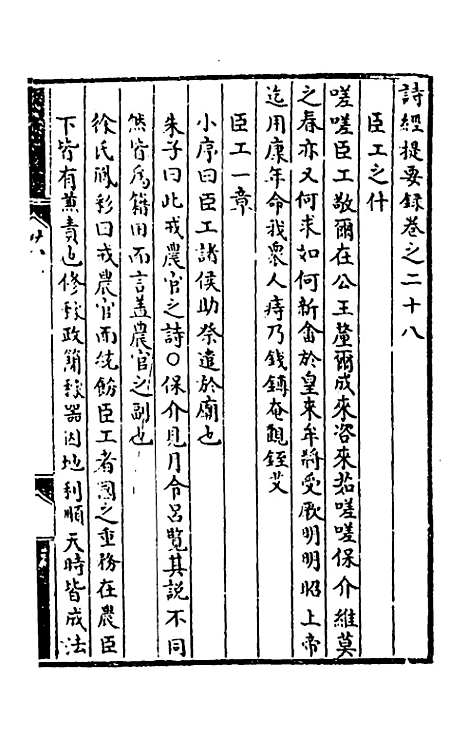 詩經提要錄卷之二十八
臣工之什
嗟嗟臣工敬爾在公王釐爾成來咨來茹嗟嗟保介維莫
之春亦又何求如何新畬於皇來牟將受厥明明昭上帝
迄用康年命我衆人庤乃錢鎛奄觀銍艾
臣工一章
小序曰臣工諸侯助祭遣於廟也
朱子曰此戒農官之詩○保介見月令呂覽其說不同
然皆為籍田而言盖農官之副也
徐氏鳳彩曰戒農官而統飭臣工者國之重務在農臣
下皆有兼責也修稼政簡稼器因地利順天時皆成法